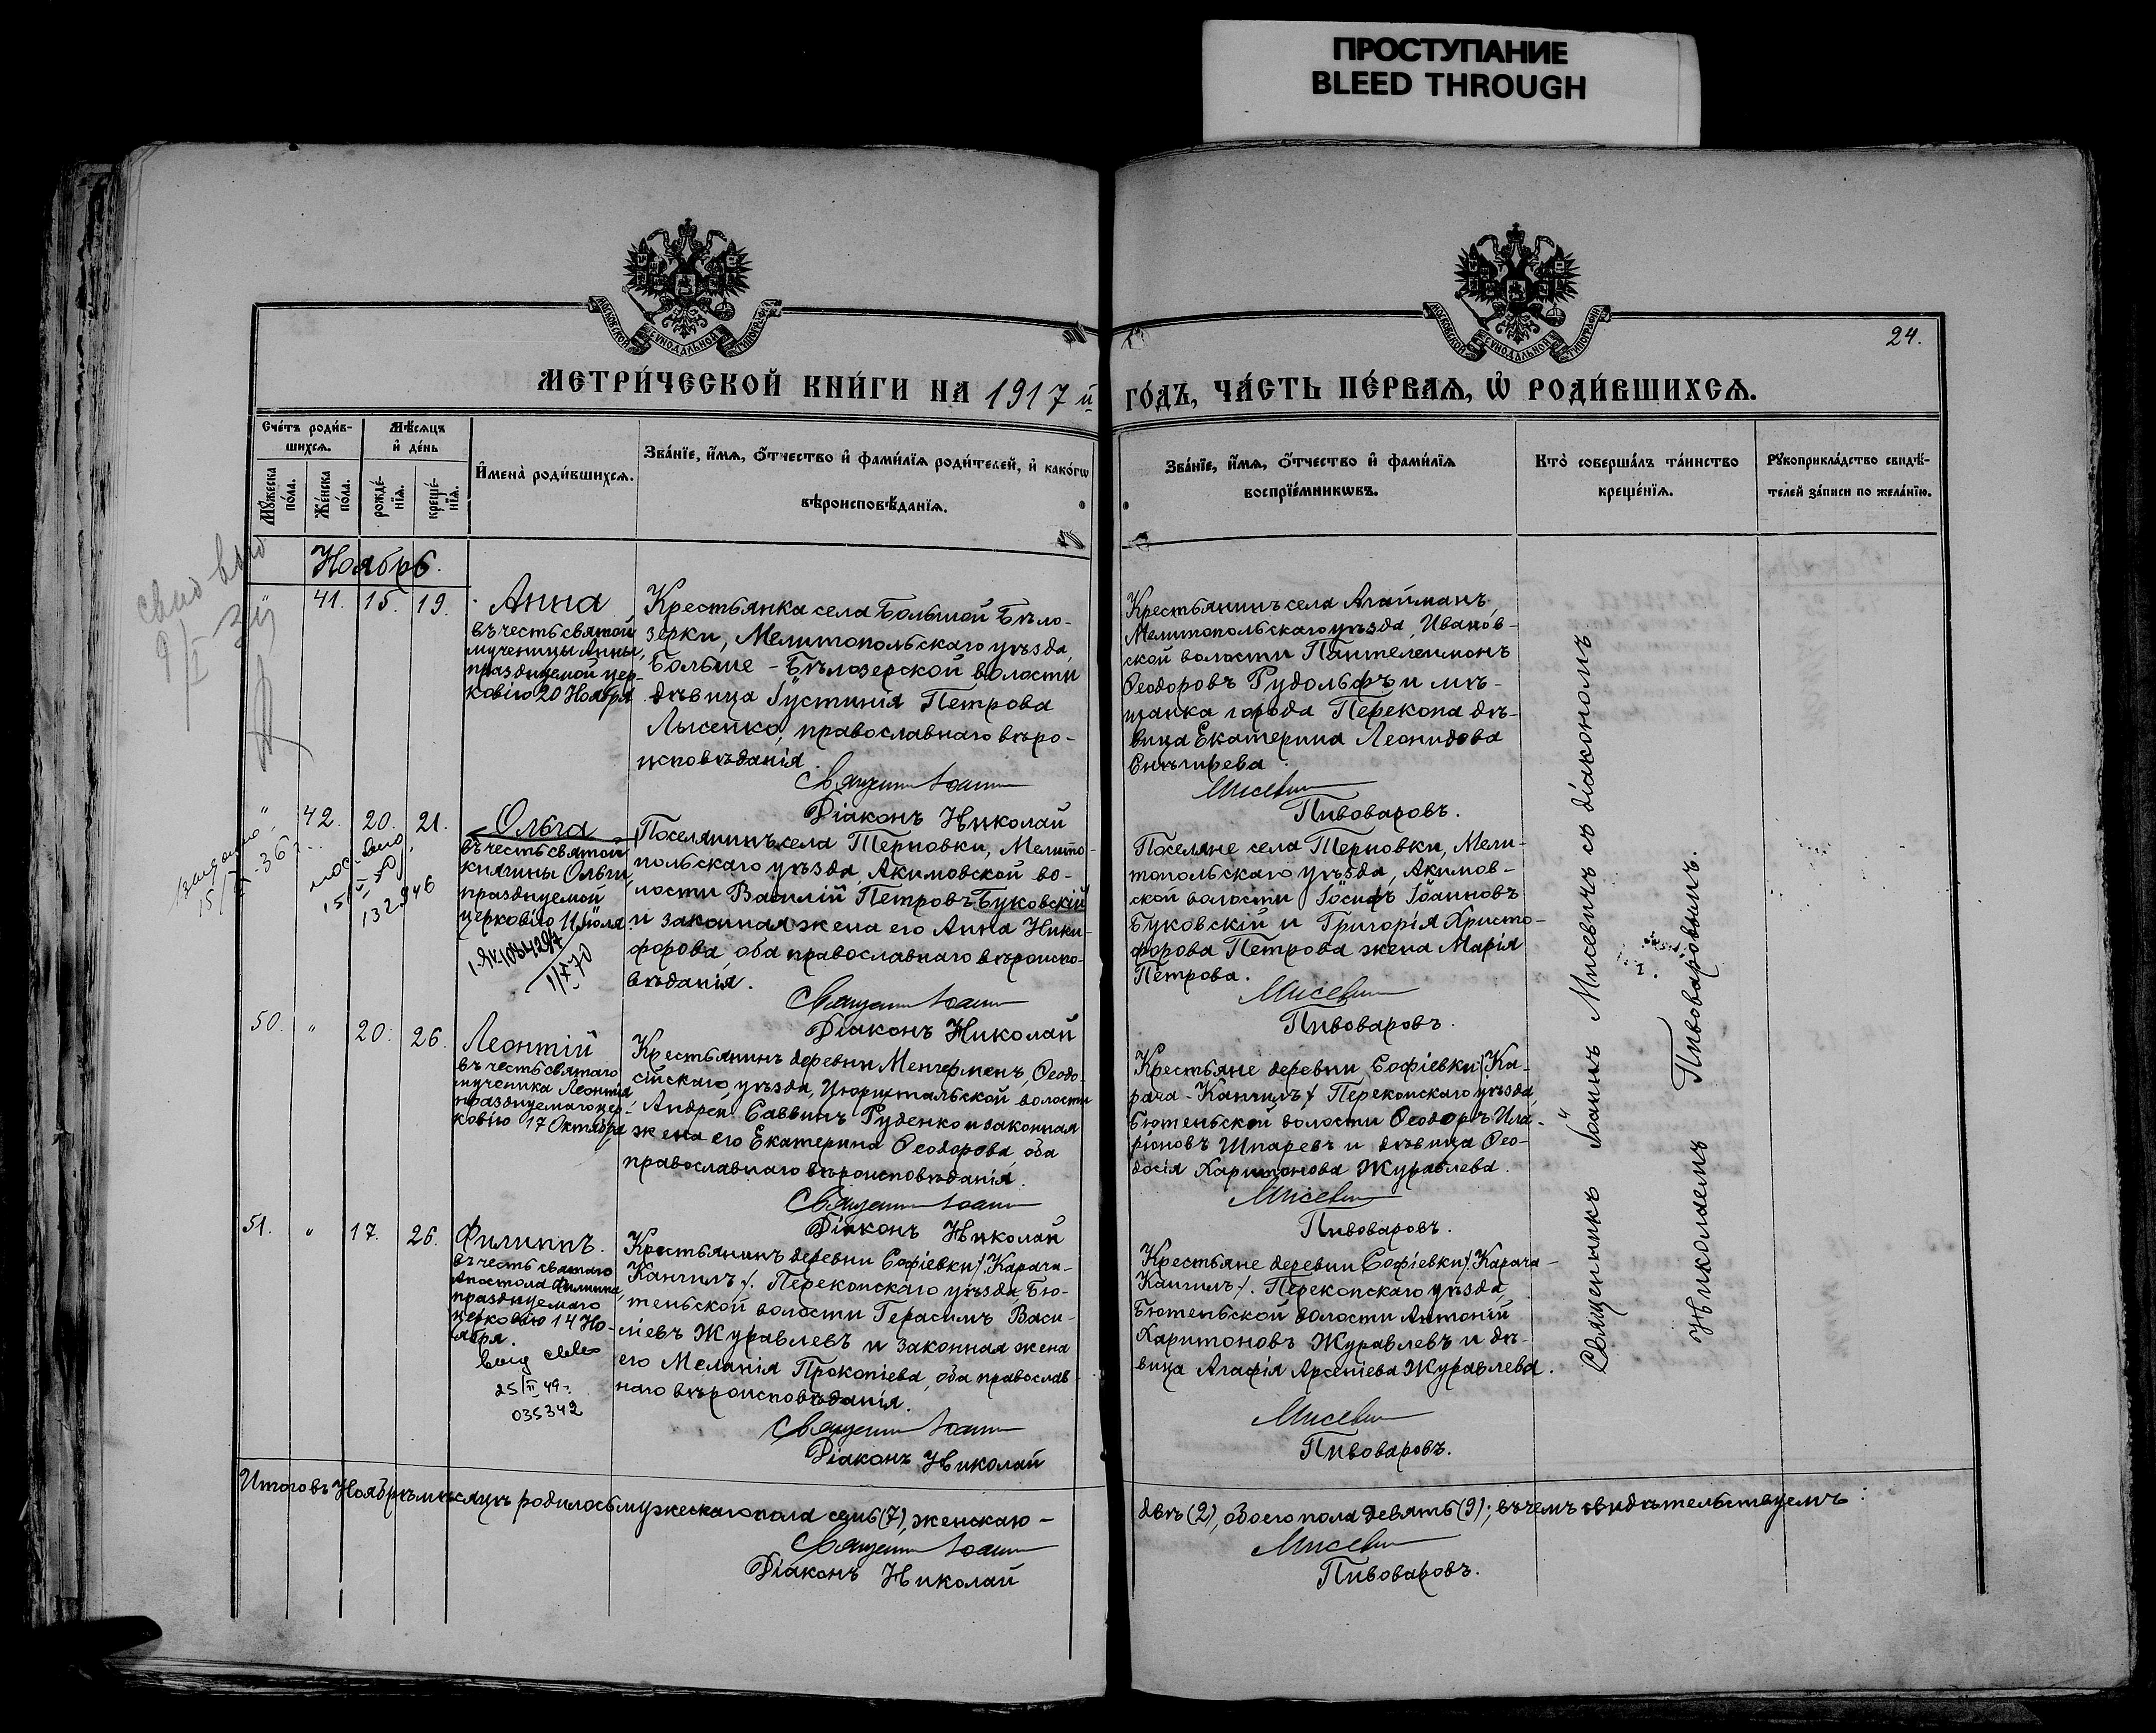 ПРОСТУПАНИЕ
BLEED THROUGH
МОСКОВСКОЙ СѴНОДАЛЬНОЙ ТИПОГРАФІИ
МОСКОВСКОЙ СѴНОДАЛЬНОЙ ТИПОГРАФІИ
24.
МЕТРИ́ЧЕСКОЙ КНИ́ГИ НА 1917 й
ГО́ДЪ, ЧА́СТЬ ПЕ́РВАѦ, Ѡ҆ РОДИ́ВШИХСѦ.
Сче́тъ роди́в-
шихсѧ.
Мѣ́сѧцъ
и҆ де́нь
Мꙋ́жеска
по́ла.
Же́нска
по́ла.
рожде́-
нїѧ.
креще́-
нїѧ.
И҆мена̀ роди́вшихсѧ.
Зва́нїе, и҆́мѧ, ѻ҆́тчество и҆ фами́лїѧ роди́телей, и҆ како́гѡ
вѣроисповѣ́данїѧ.
Зва́нїе, и҆́мѧ, ѻ҆́тчество и҆ фами́лїѧ
воспрїе́мникѡвъ.
Кто̀ соверша́лъ та́инство
креще́нїѧ.
Рꙋкоприкла́дство свидѣ́-
телей за́писи по жела́нїю.
Ноябрь.
" 41. 15. 19.
Анна
въ честь святой
мученицы Анны,
празднуемой цер-
ковію 20 Ноября
Крестьянка села Большой Бѣло-
зерки, Мелитопольскаго уѣзда,
Больше-Бѣлозерской волости
дѣвица Іустинія Петрова
Лысенко, православнаго вѣро-
исповѣданія.
Священ Іоанн
Діаконъ Николай
Крестьянинъ села Агайманъ,
Мелитопольскаго уѣзда, Иванов-
ской волости Пантелеимонъ
Ѳеодоровъ Рудольфъ и мѣ-
щанка города Перекопа дѣ-
вица Екатерина Леонидова
Снѣгирева.
Мисевич
Пивоваровъ.
" 42. 20. 21.
Ольга
въ честь святой
княгины Ольги,
празднуемой
церковію 11 Іюля
132946
11/X 70
Поселянинъ села Терновки, Мелито-
польскаго уѣзда, Акимовской во-
лости Василій Петровъ Буковскій
и законная жена его Анна Ники-
форова, оба православнаго вѣроиспо-
вѣданія.
Священ Іоанн
Діаконъ Николай
Поселяне села Терновки, Мели-
топольскаго уѣзда, Акимов-
ской волости Іосифъ Іоанновъ
Буковскій и Григорія Христо-
форова Петрова жена Марія
Петрова.
Мисевич
Пивоваровъ.
50. " 20. 26.
Леонтій
въ честь святаго
мученика Леонтія,
празднуемаго цер-
ковію 17 Октября
Крестьянинъ деревни Менгерменъ, Ѳеодо-
сійскаго уѣзда, Цюрихтальской волости
Андрей Саввинъ Руденко и законная
жена его Екатерина Ѳеодорова, оба
православнаго вѣроисповѣданія.
Священ Іоанн
Діаконъ Николай
Крестьяне деревни Софіевки /Ка-
рача-Кангилъ/ Перекопскаго уѣзда,
Бютеньской волости Ѳеодоръ Ила-
ріоновъ Шпаревъ и дѣвица Ѳео-
досія Харитонова Журавлева.
Мисевич
Пивоваровъ.
51. " 17. 26.
Филиппъ.
въ честь святаго
Апостола Филиппа,
празднуемаго
церковію 14 Но-
ября.
25/II 49 г.
035342
Крестьянинъ деревни Софіевки /Карача-
Кангилъ/. Перекопскаго уѣзда, Бю-
теньской волости Герасимъ Васи-
ліевъ Журавлевъ и законная жена
его Меланія Прокопіева, оба православ-
наго вѣроисповѣданія.
Священ Іоанн
Діаконъ Николай
Крестьяне деревни Софіевки /Карача-
Кангилъ/. Перекопскаго уѣзда,
Бютеньской волости Антоній
Харитоновъ Журавлевъ и дѣ-
вица Агафія Арсеніева Журавлева.
Мисевич
Пивоваровъ.
Священникъ Іоаннъ Мисевичъ съ діакономъ
Николаемъ Пивоваровымъ.
Итого въ Ноябрѣ мѣсяцѣ родилось мужескаго пола семь (7), женскаго -
двѣ (2), обоего пола девять (9); въ чемъ свидѣтельствуемъ:
Священ Іоанн
Діаконъ Николай
Мисевич
Пивоваровъ.